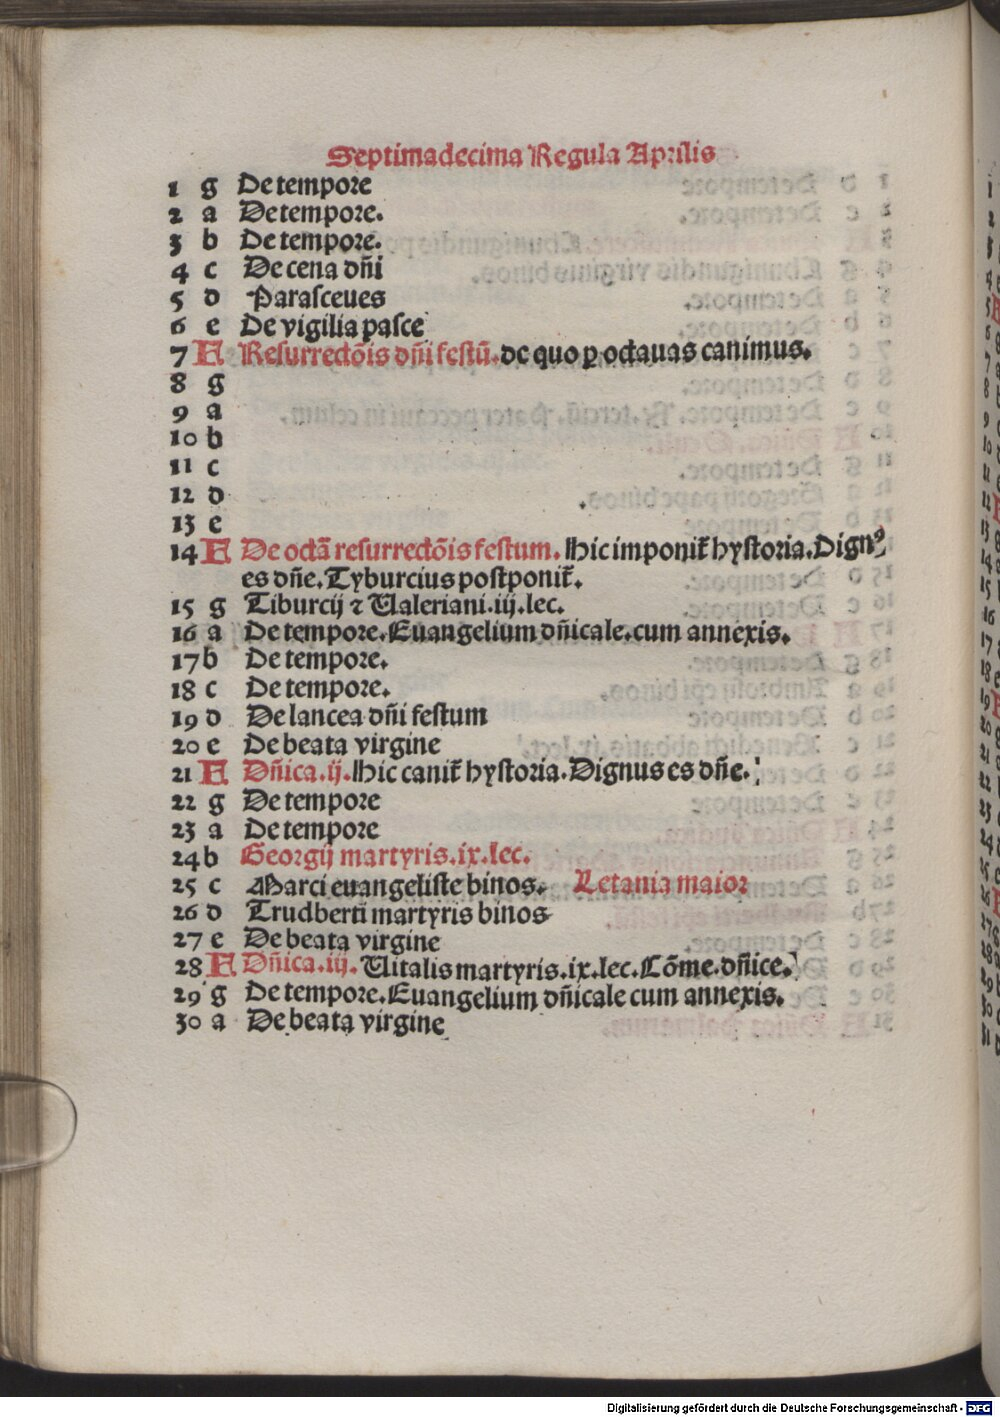 Septimadecima Regula Aprilis
1 g De tempore
2 a De tempore.
3 b De tempore.
4 c De cena dñi
5 d Parasceues
6 e De vigilia pasce
7 A Resurrectõis dñi festũ. de quo ꝑ octauas canimus.
8 g
9 a
10 b
11 c
12 d
13 e
14 A De octã resurrectõis festum. Hic imponit̃ hystoria. Dignꝰ
es dñe. Tyburcius postponit̃.
15 g Tiburcij ⁊ Ualeriani. iij. lec.
16 a De tempore. Euangelium dñicale. cum annexis.
17 b De tempore.
18 c De tempore.
19 d De lancea dñi festum
20 e De beata virgine
21 A Dñica. ij. Hic canit̃ hystoria. Dignus es dñe.
22 g De tempore
23 a De tempore
24 b Georgij martyris. ix. lec.
25 c Marci euangeliste binos. Letania maior
26 d Trudberti martyris binos
27 e De beata virgine
28 A Dñica. iij. Uitalis martyris. ix. lec. Cõme. dñice.
29 g De tempore. Euangelium dñicale cum annexis.
30 a De beata virgine
Digitalisierung gefördert durch die Deutsche Forschungsgemeinschaft - DFG